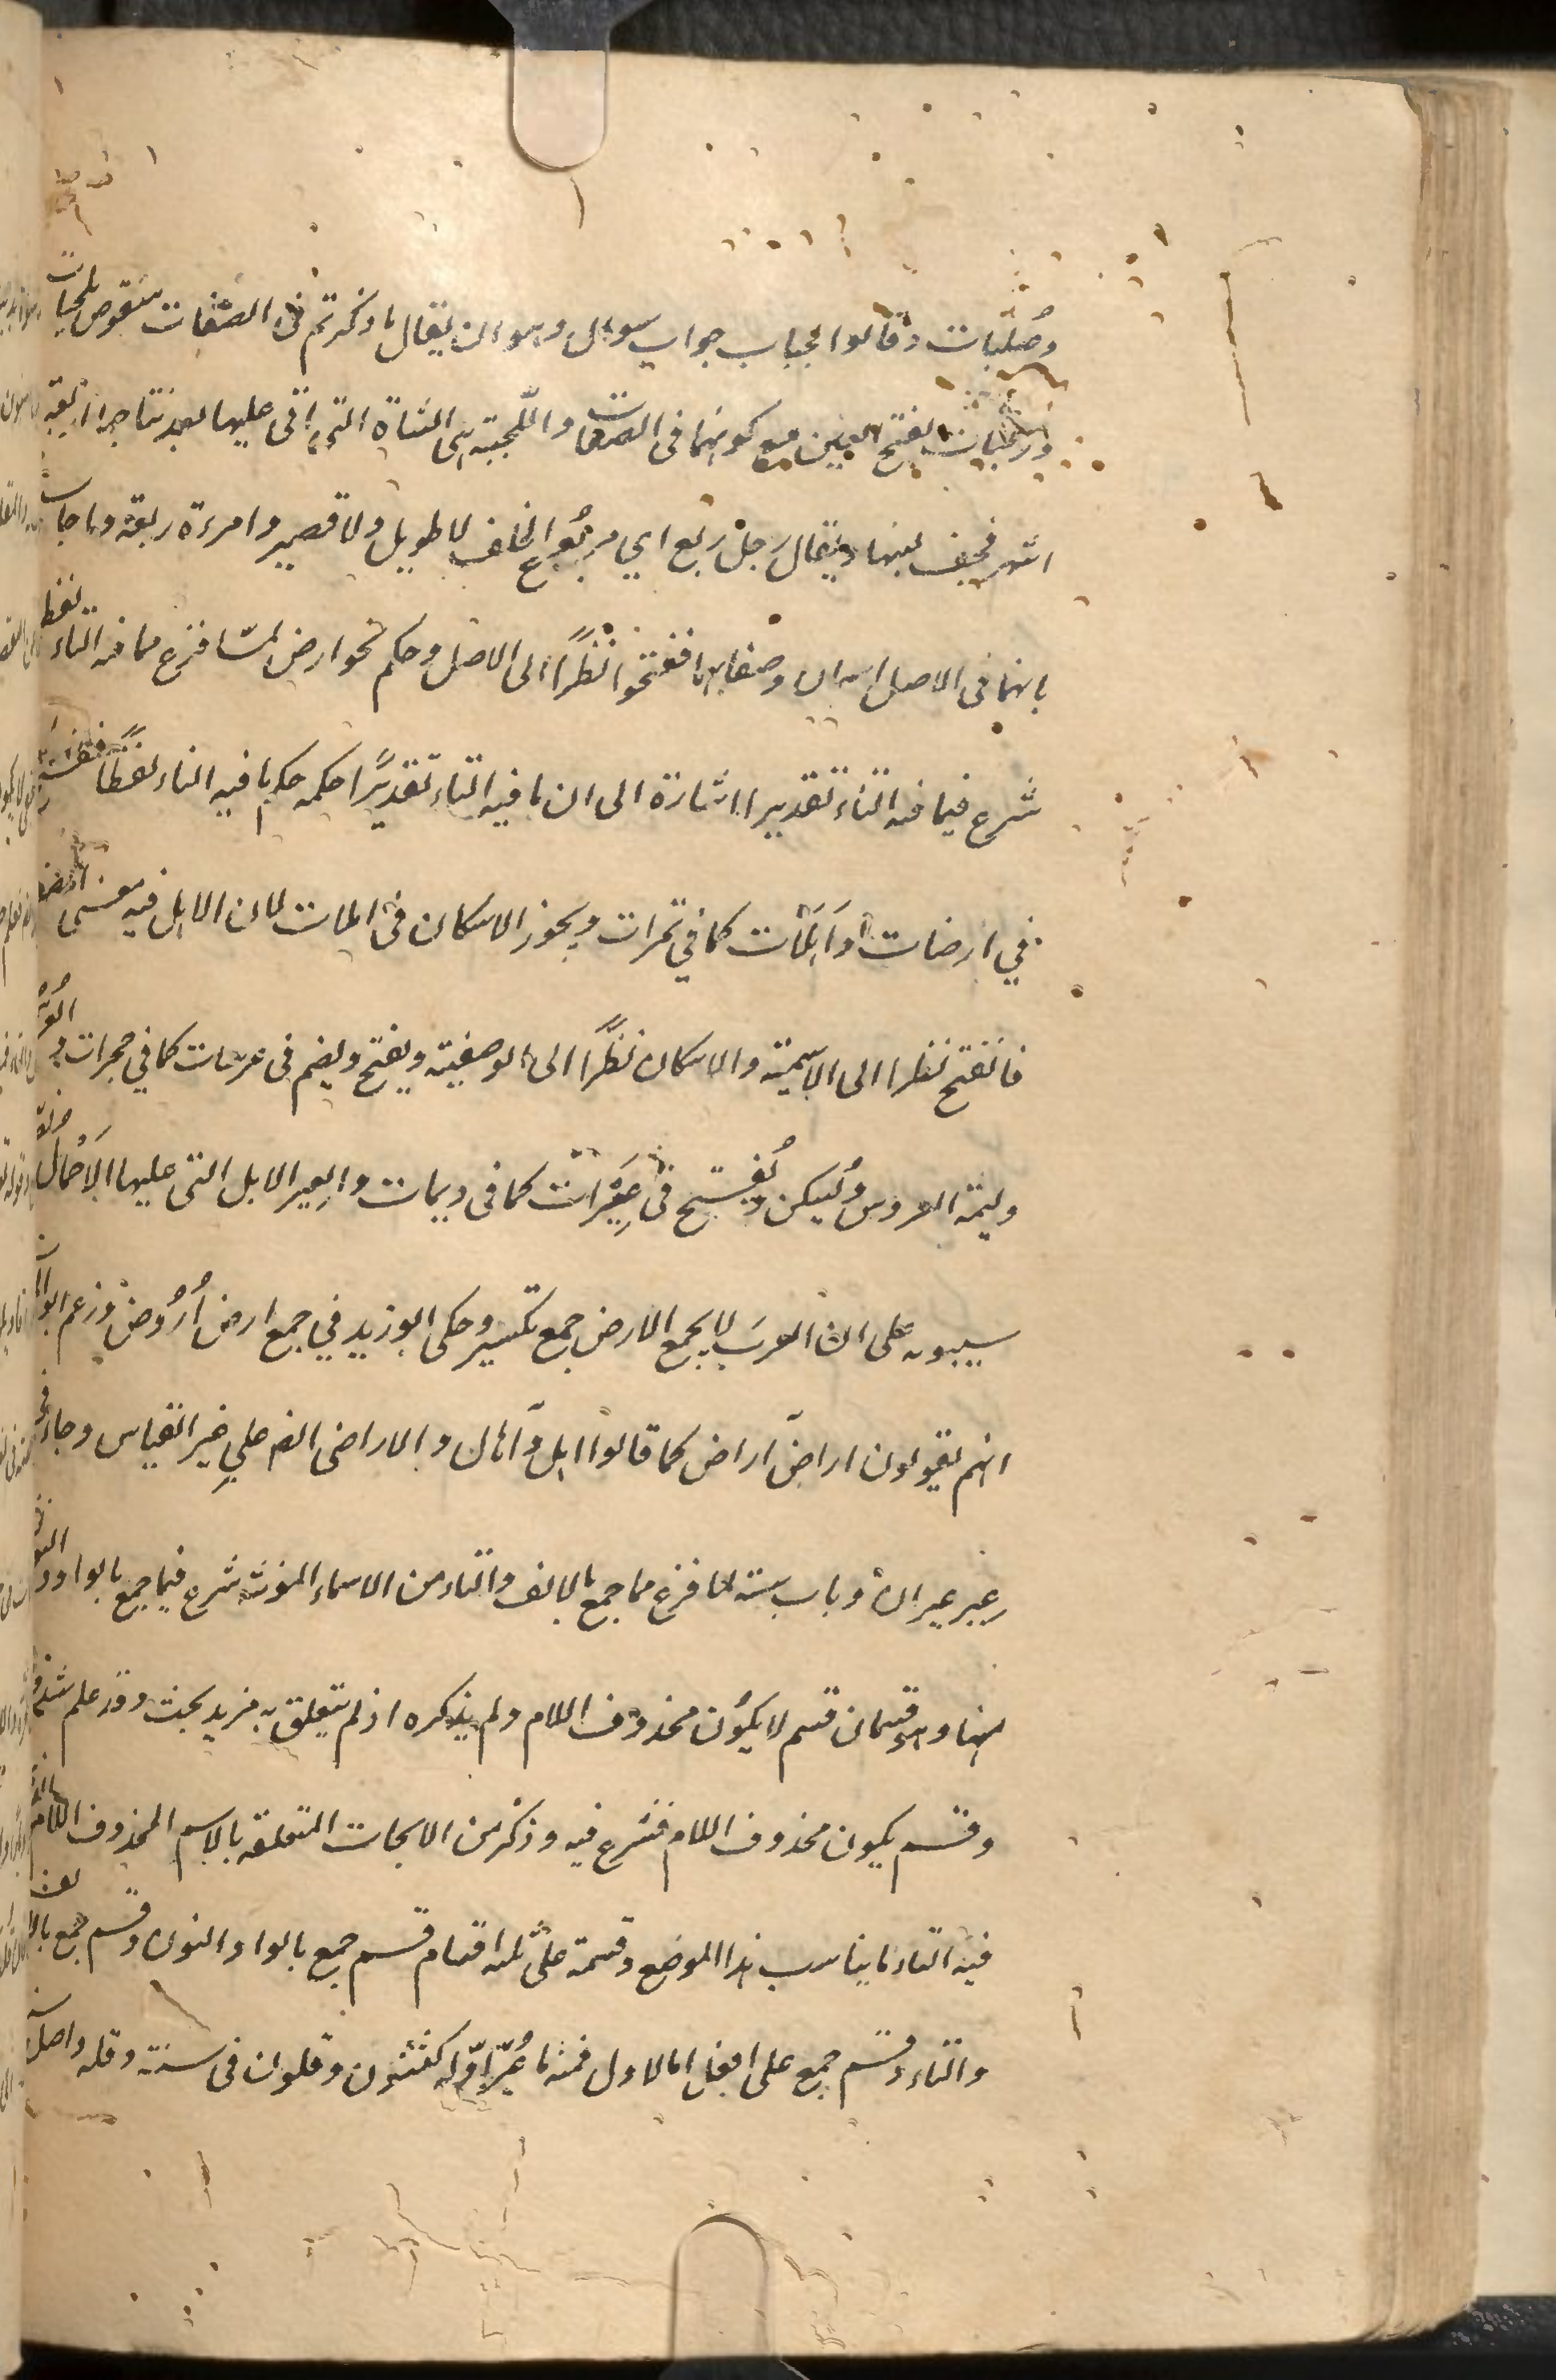 وصُلّبات وقالوا لجبات جواب سوال وهو ان يقال ما ذكرتم فى الصفات منقوض بلجبات
وربعات بفتح العين مع كونهما فى الصفات واللّجبة هى الشاة التى اتى عليها بعد نتاجها اربعة
اشهر فخف لبنها ويقال رجل ربع اي مربوع الخلق لا طويل ولا قصير وامرءة ربعة وما جات
بانهما فى الاصل اسمان وصف بهما ففتحوا نظرًا الى الاصل وحكم نحو ارض لمّا فرغ مما فيه التاء لفظا
شرع فيما فيه التاء تقديرا اشارة الى ان ما فيه التاء تقديرًا حكمه حكم ما فيه التاء لفظًا
في ارضات واَهَلات كما في تمرات ويجوز الاسكان فى اهلات لان الاهل فيه معنى
فالفتح نظرا الى الاسمية والاسكان نظرًا الى الوصفية ويفتح ويضم فى عرسات كما في حجرات و
وليمة العروس ويُسكن ويُفتح فى عِيَرات كما فى ديمات والعير الابل التى عليها الاَحْمال
سيبويه على ان العرب لا يجمع الارض جمع تكسير وحكى ابو زيد في جمع ارض اُرُوض وزعم ابو
انهم يقولون ارض آراض كما قالوا اهل وآهال والاراضى ايضا على غير القياس وجاء
عير عيران وباب سنة لما فرغ مما جمع بالالف والتاء من الاسماء المؤنثة شرع فيما جمع بالواو
منها وهو قسمان قسم لا يكون محذوف اللام ولم يذكره اذ لم يتعلق به مزيد بحث وقد علم
وقسم يكون محذوف اللام فشرع فيه وذكر من الابحاث المتعلقة بالاسم المحذوف اللام
فيه التاء ما يناسب هذا الموضع وقسمه على ثلثة اقسام قسم جمع بالواو والنون وقسم جمع بالالف
والتاء وقسم جمع على افعل اما الاول فمنه ما غُيّر اوّله كسنون وقلون فى سنة وقلة واصل